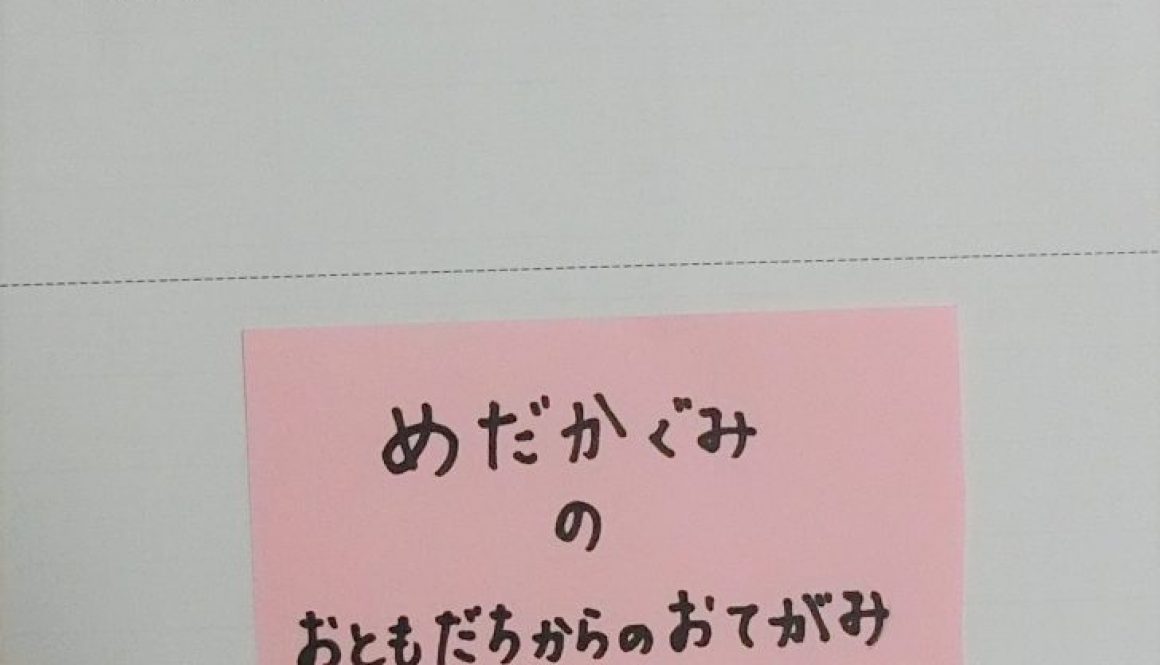 めだかぐみ
の
おともだちからのおてがみ